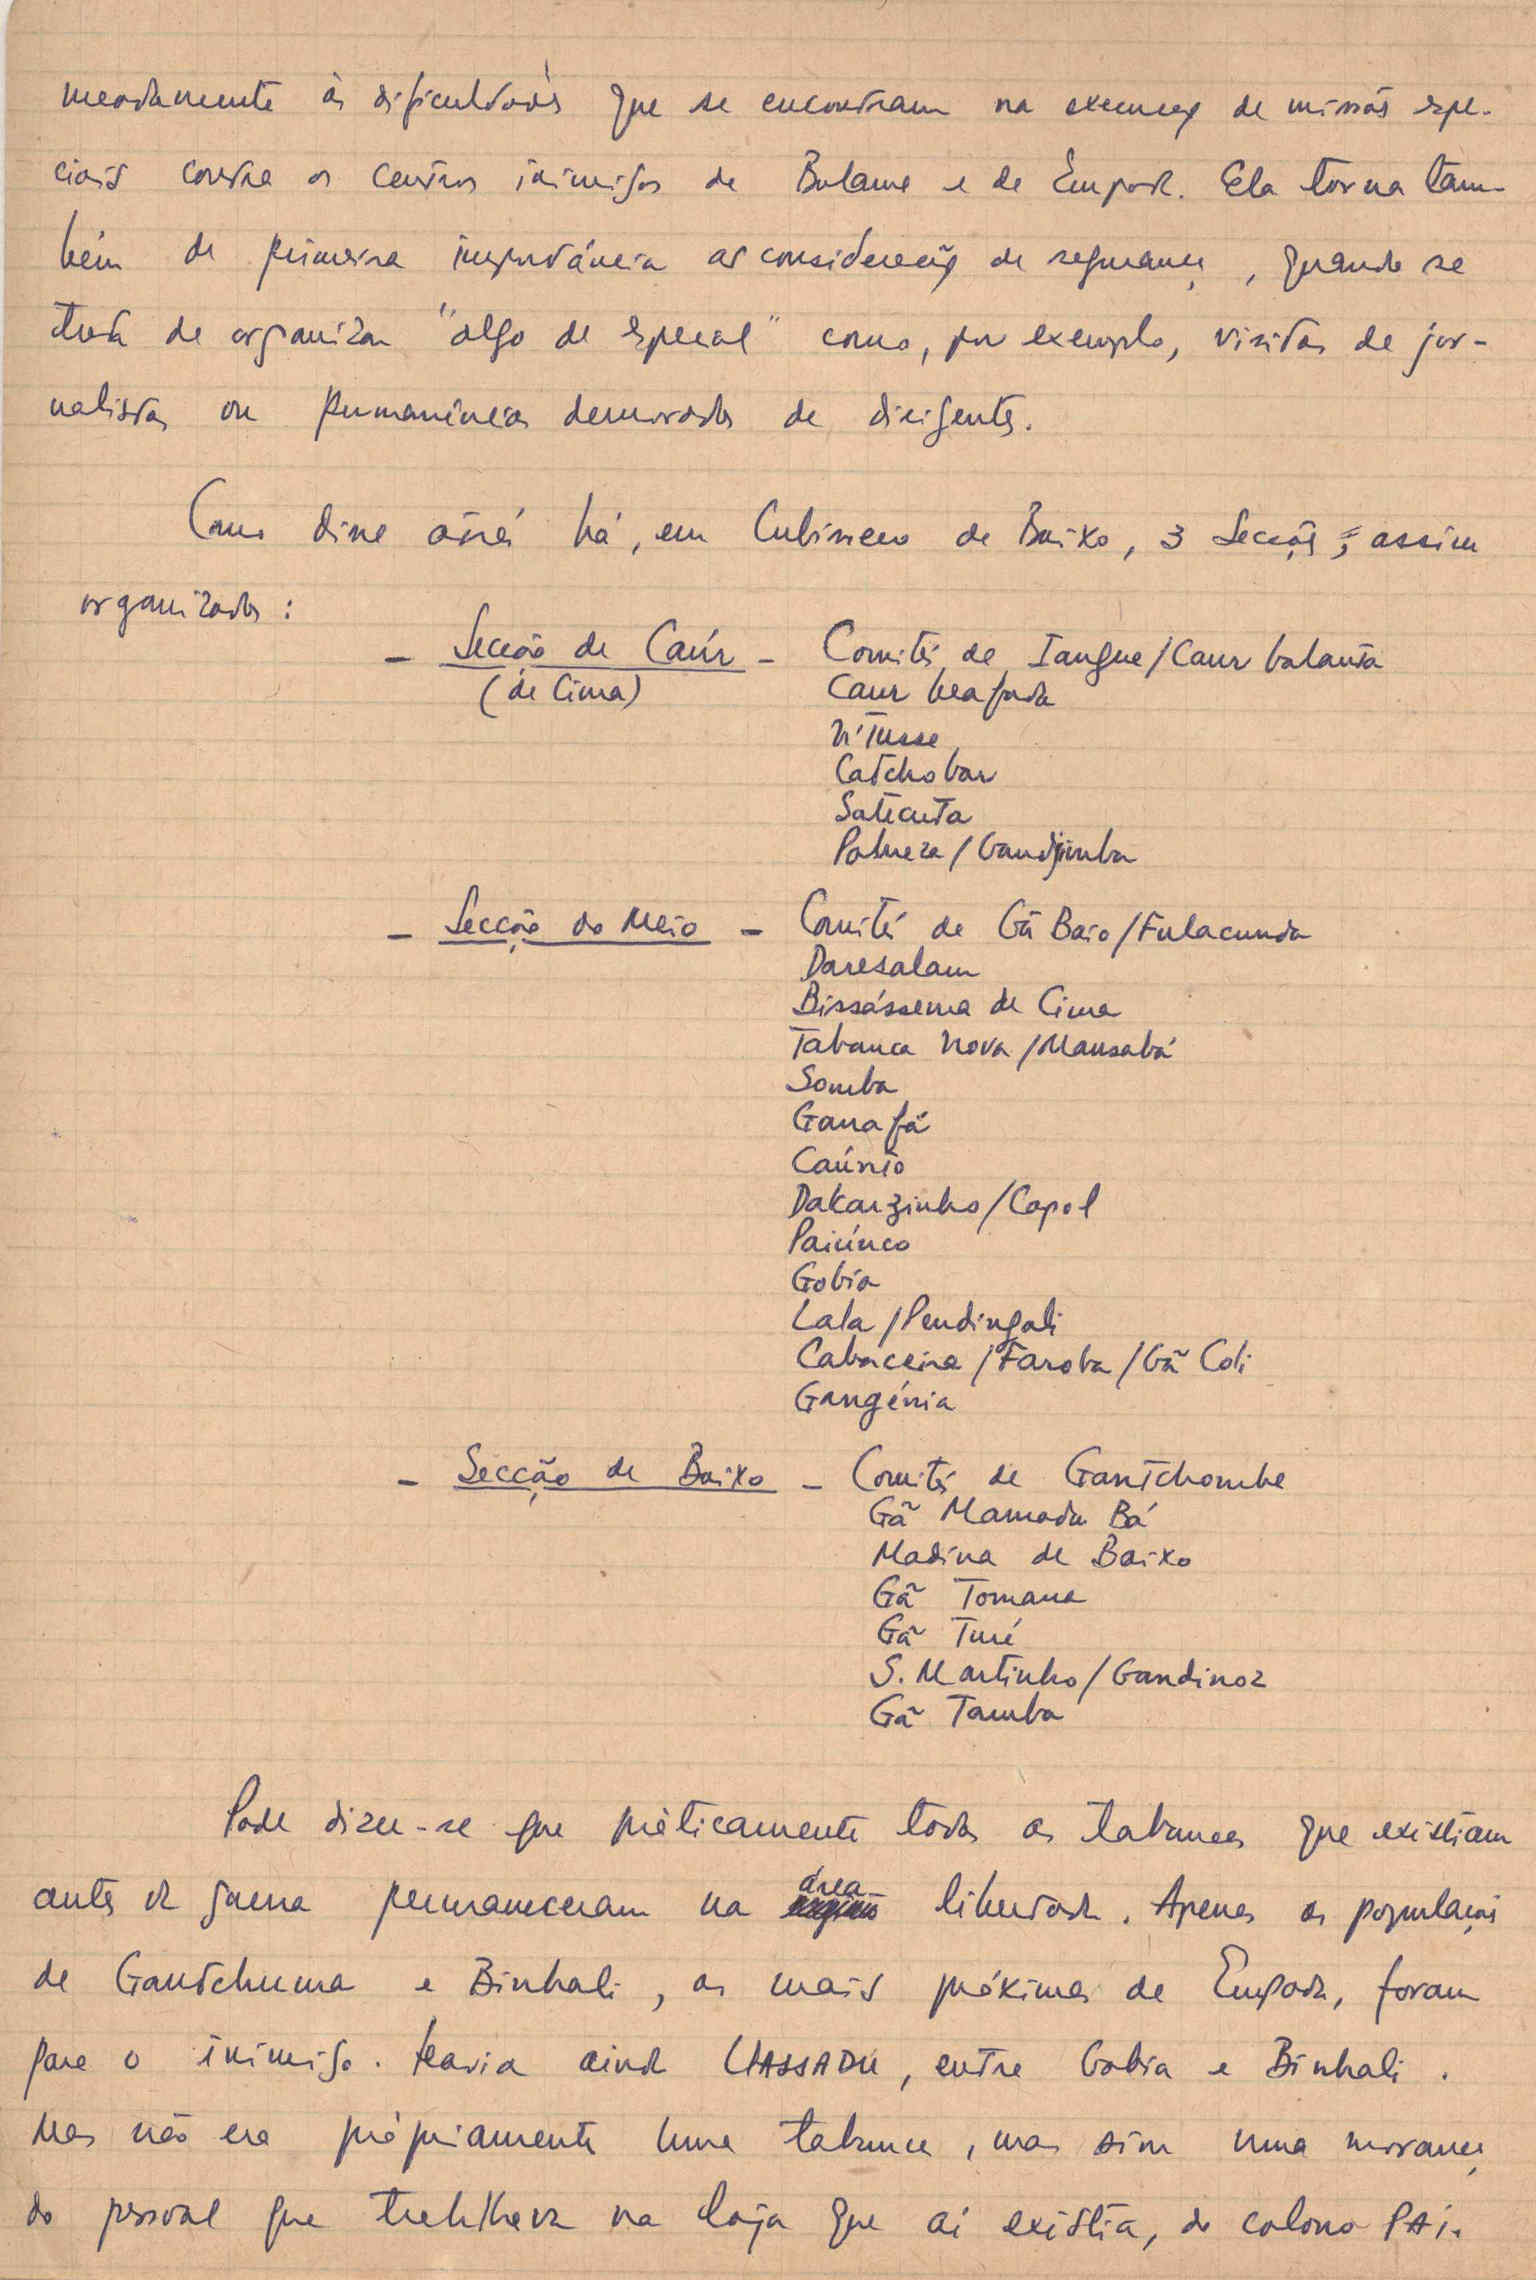 meadamente às dificuldades que se encontram na execução de missões espe-
ciais contra os centros inimigos de Bolama e de Empada. Ela torna tam-
bém de primeira importância as considerações de segurança, quando se
trata de organizar "algo de especial" como, por exemplo, visitas de jor-
nalistas ou permanências demoradas de dirigentes.
Como disse atrás há, em Cubisseco de Baixo, 3 Secções, assim
organizadas:
- Secção de Caúr - Comités de Iangue/Caur balanta
(de Cima)
Caur beafada
N'Tusse
Catchobar
Satecuta
Pobreza/Gandjimba
- Secção do Meio - Comités de Gã Baio/Fulacunda
Daresalam
Bissássema de Cima
Tabanca Nova/Mansabá
Somba
Ganafá
Caúnto
Dakarzinho/Capol
Paiúnco
Gobia
Lala/Pendingali
Cabaceira/Faroba/Gã Coli
Gangénia
- Secção de Baixo - Comités de Gantchombe
Gã Mamadu Bá
Madina de Baixo
Gã Tomana
Gã Turé
S. Martinho/Gandinoz
Gã Tamba
Pode dizer-se que pràticamente todas as tabancas que existiam
antes da guerra permaneceram na área libertada. Apenas as populações
de Gantchuma e Binhali, as mais próximas de Empada, foram
para o inimigo. Havia ainda UASSADU, entre Gobia e Binhali.
Mas não era pròpriamente uma tabanca, mas sim uma morança
do pessoal que trabalhava na loja que aí existia, do colono PAI.